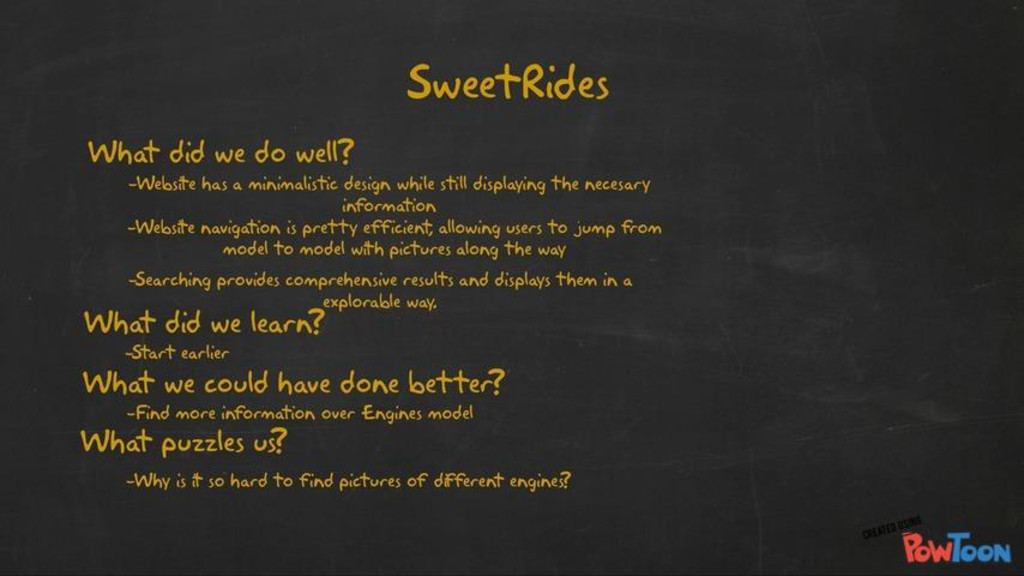 SweetRides
What did we do well?
-Website has a minimalistic design while still displaying the necesary
information
-Website navigation is pretty efficient, allowing users to jump from
model to model with pictures along the way
-Searching provides comprehensive results and displays them in a
explorable way.
What did we learn?
-Start earlier
What we could have done better?
-Find more information over Engines model
What puzzles us?
-Why is it so hard to find pictures of different engines?
CREATED USING
POWTOON